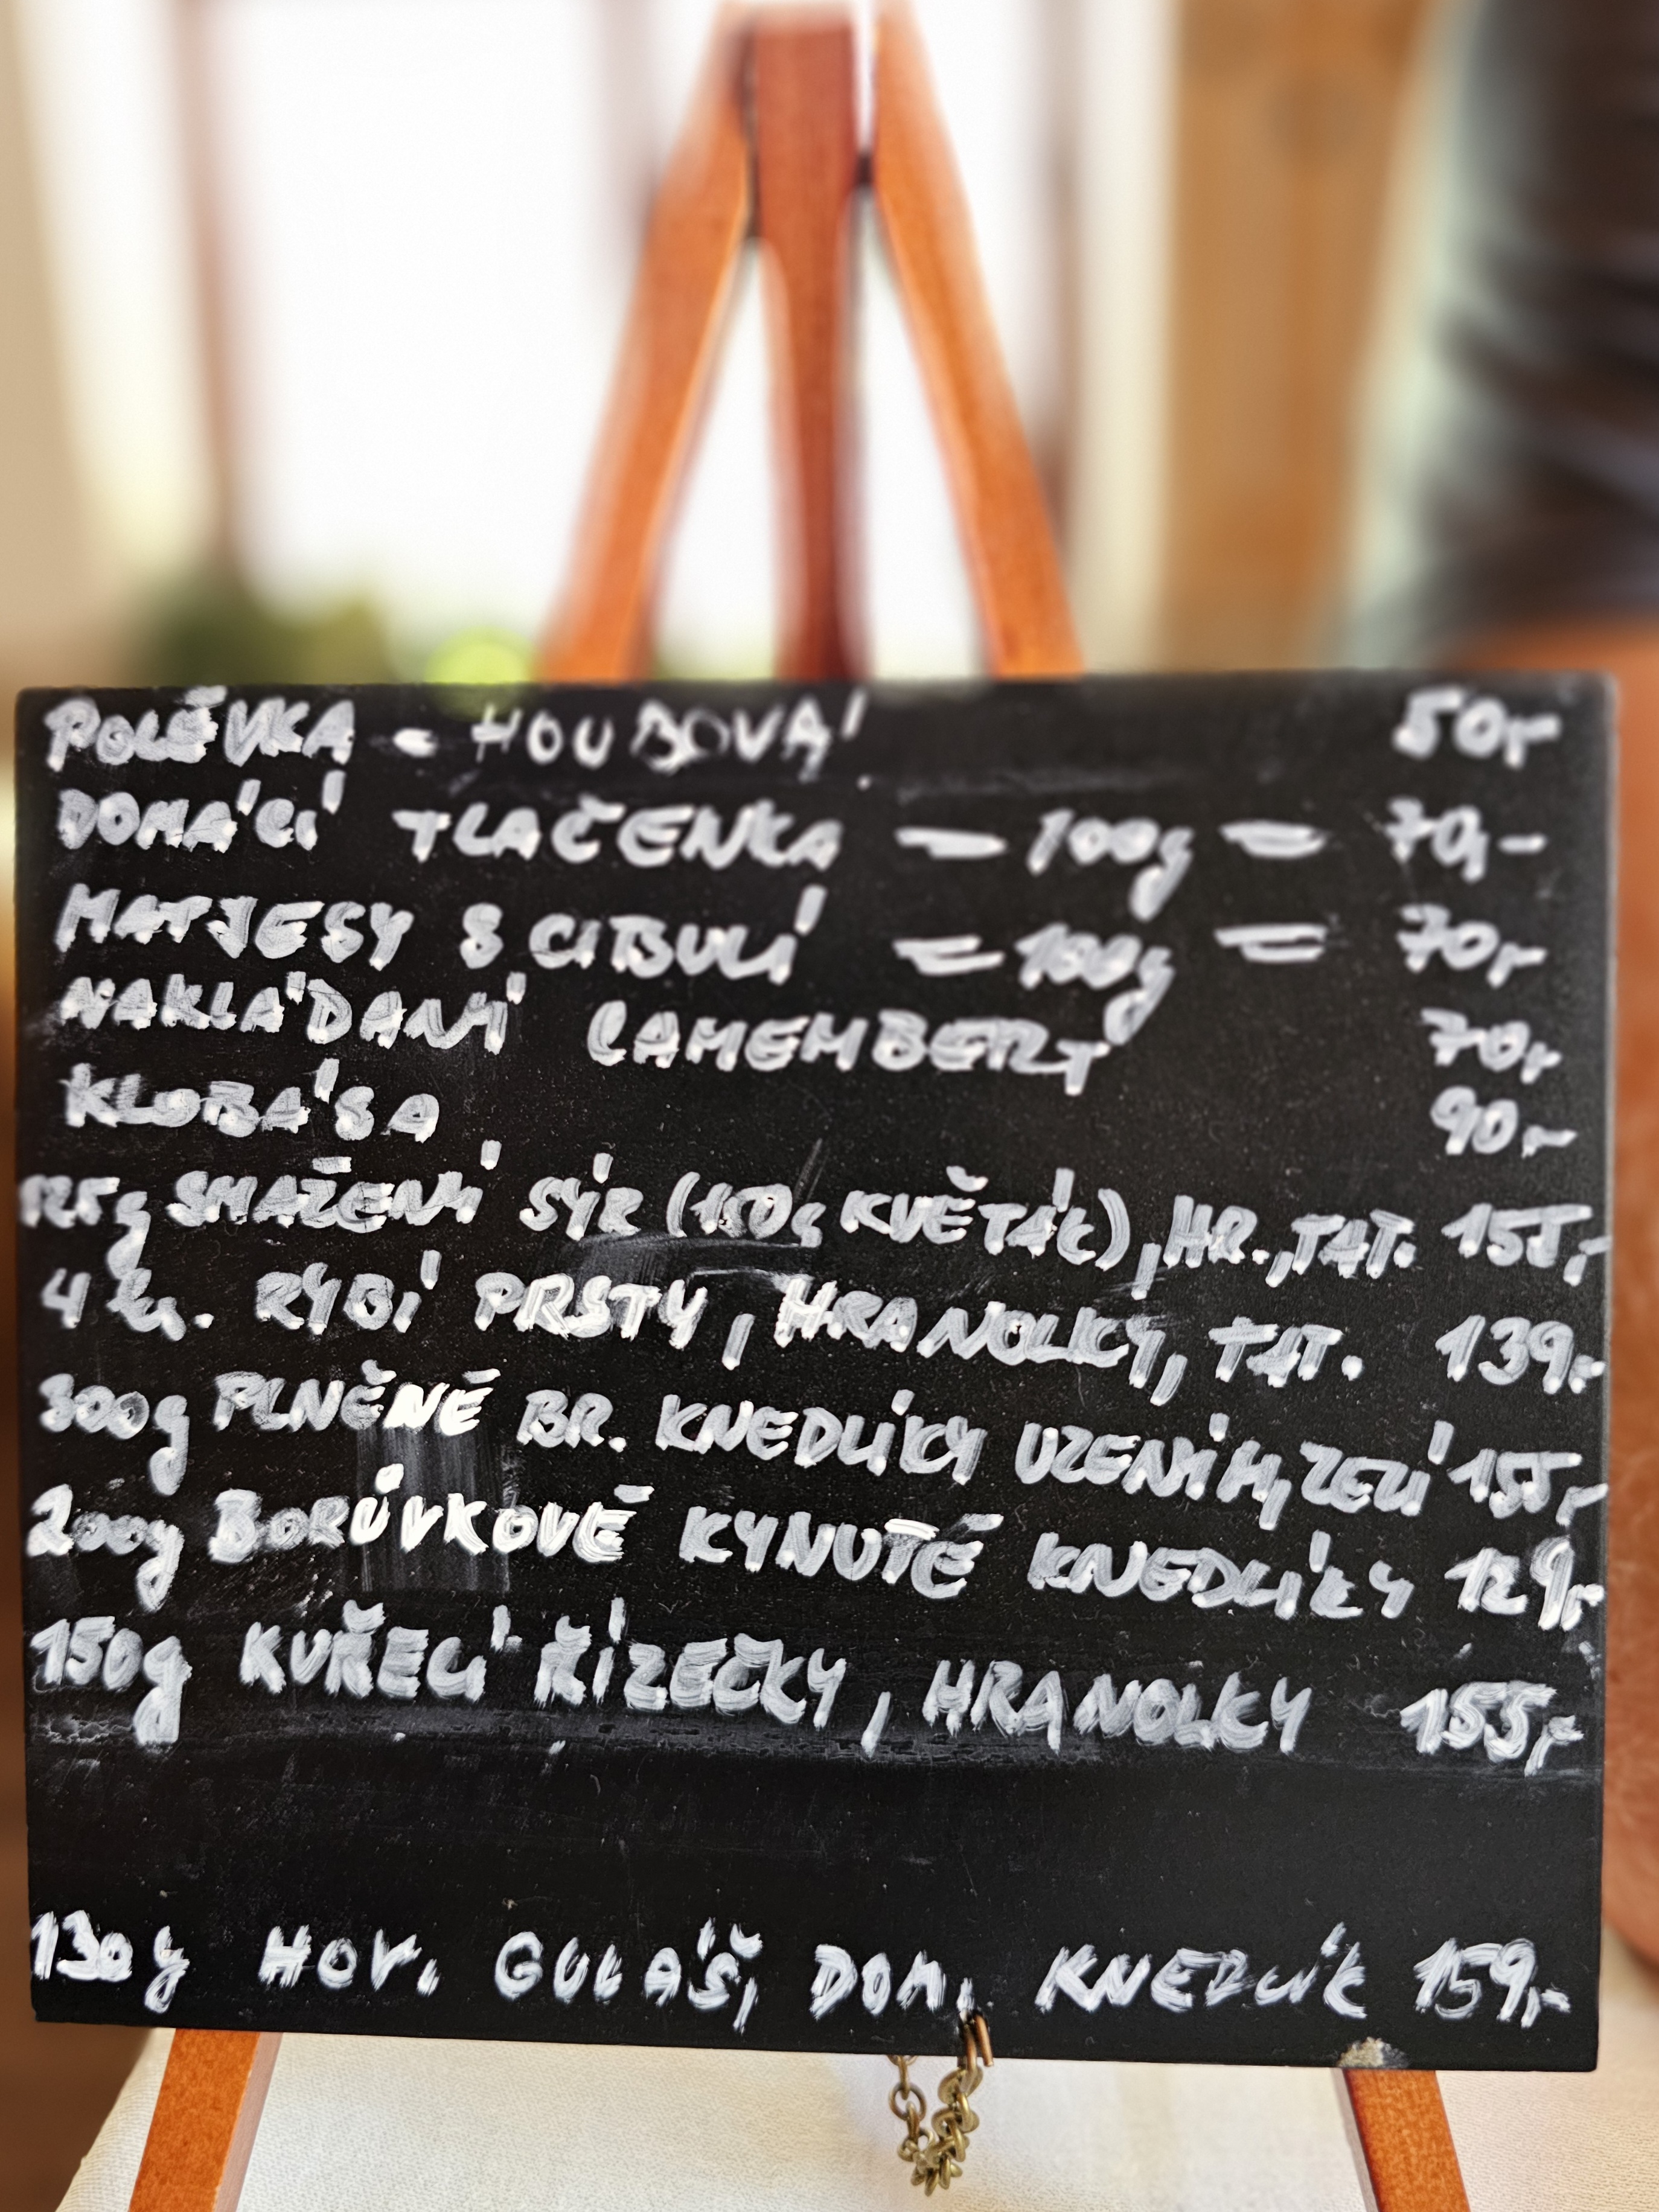 POLÉVKA - HOUBOVÁ 50,-
DOMÁCÍ TLAČENKA - 100g - 70,-
MATJESY S CIBULÍ - 100g - 70,-
NAKLÁDANÝ CAMEMBERT 70,-
KLOBÁSA 90,-
125g SMAŽENÝ SÝR (150g KVĚTÁK), HR., TAT. 155,-
4 ks. RYBÍ PRSTY, HRANOLKY, TAT. 139,-
300g PLNĚNÉ BR. KNEDLÍKY UZENÝM, ZELÍ 155,-
200g BORŮVKOVÉ KYNUTÉ KNEDLÍKY 129,-
150g KUŘECÍ ŘÍZEČKY, HRANOLKY 155,-
130g HOV. GULÁŠ, DOM. KNEDLÍK 159,-